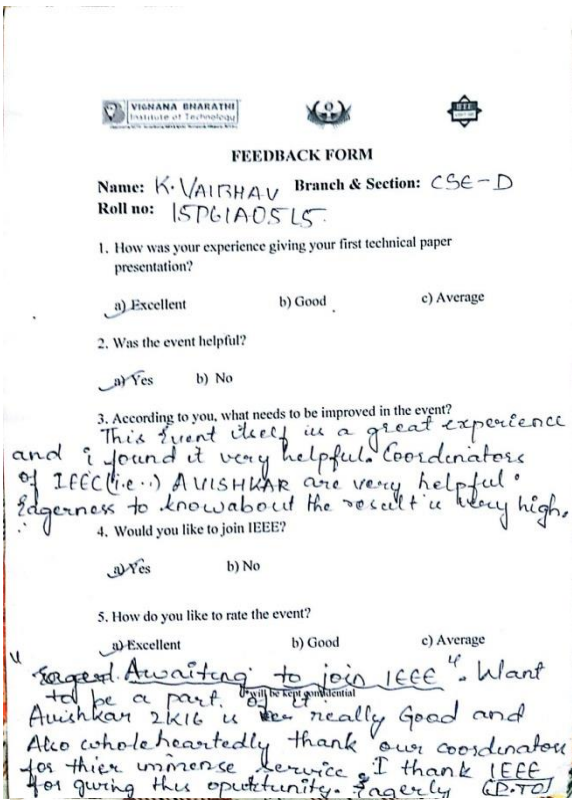 VIGNANA BHARATHI
Institute of Technology
FEEDBACK FORM
Name: K. VAIBHAV Branch & Section: CSE-D
Roll no: 15P61A0515
1. How was your experience giving your first technical paper
presentation?
a) Excellent b) Good c) Average
2. Was the event helpful?
a) Yes b) No
3. According to you, what needs to be improved in the event?
This Event itself is a great experience
and i found it very helpful. Coordinators
of IEEE(i.e..) AVISHKAR are very helpful.
Eagerness to know about the result is very high.
4. Would you like to join IEEE?
a) Yes b) No
5. How do you like to rate the event?
a) Excellent b) Good c) Average
" Awaiting to join IEEE ". Want
to be a part of it
will be kept confidential
Avishkar 2K16 is really Good and
Also wholeheartedly thank our coordinators
for thier immense service. I thank IEEE
for giving this oputktunity. Eagerly (P.TO)